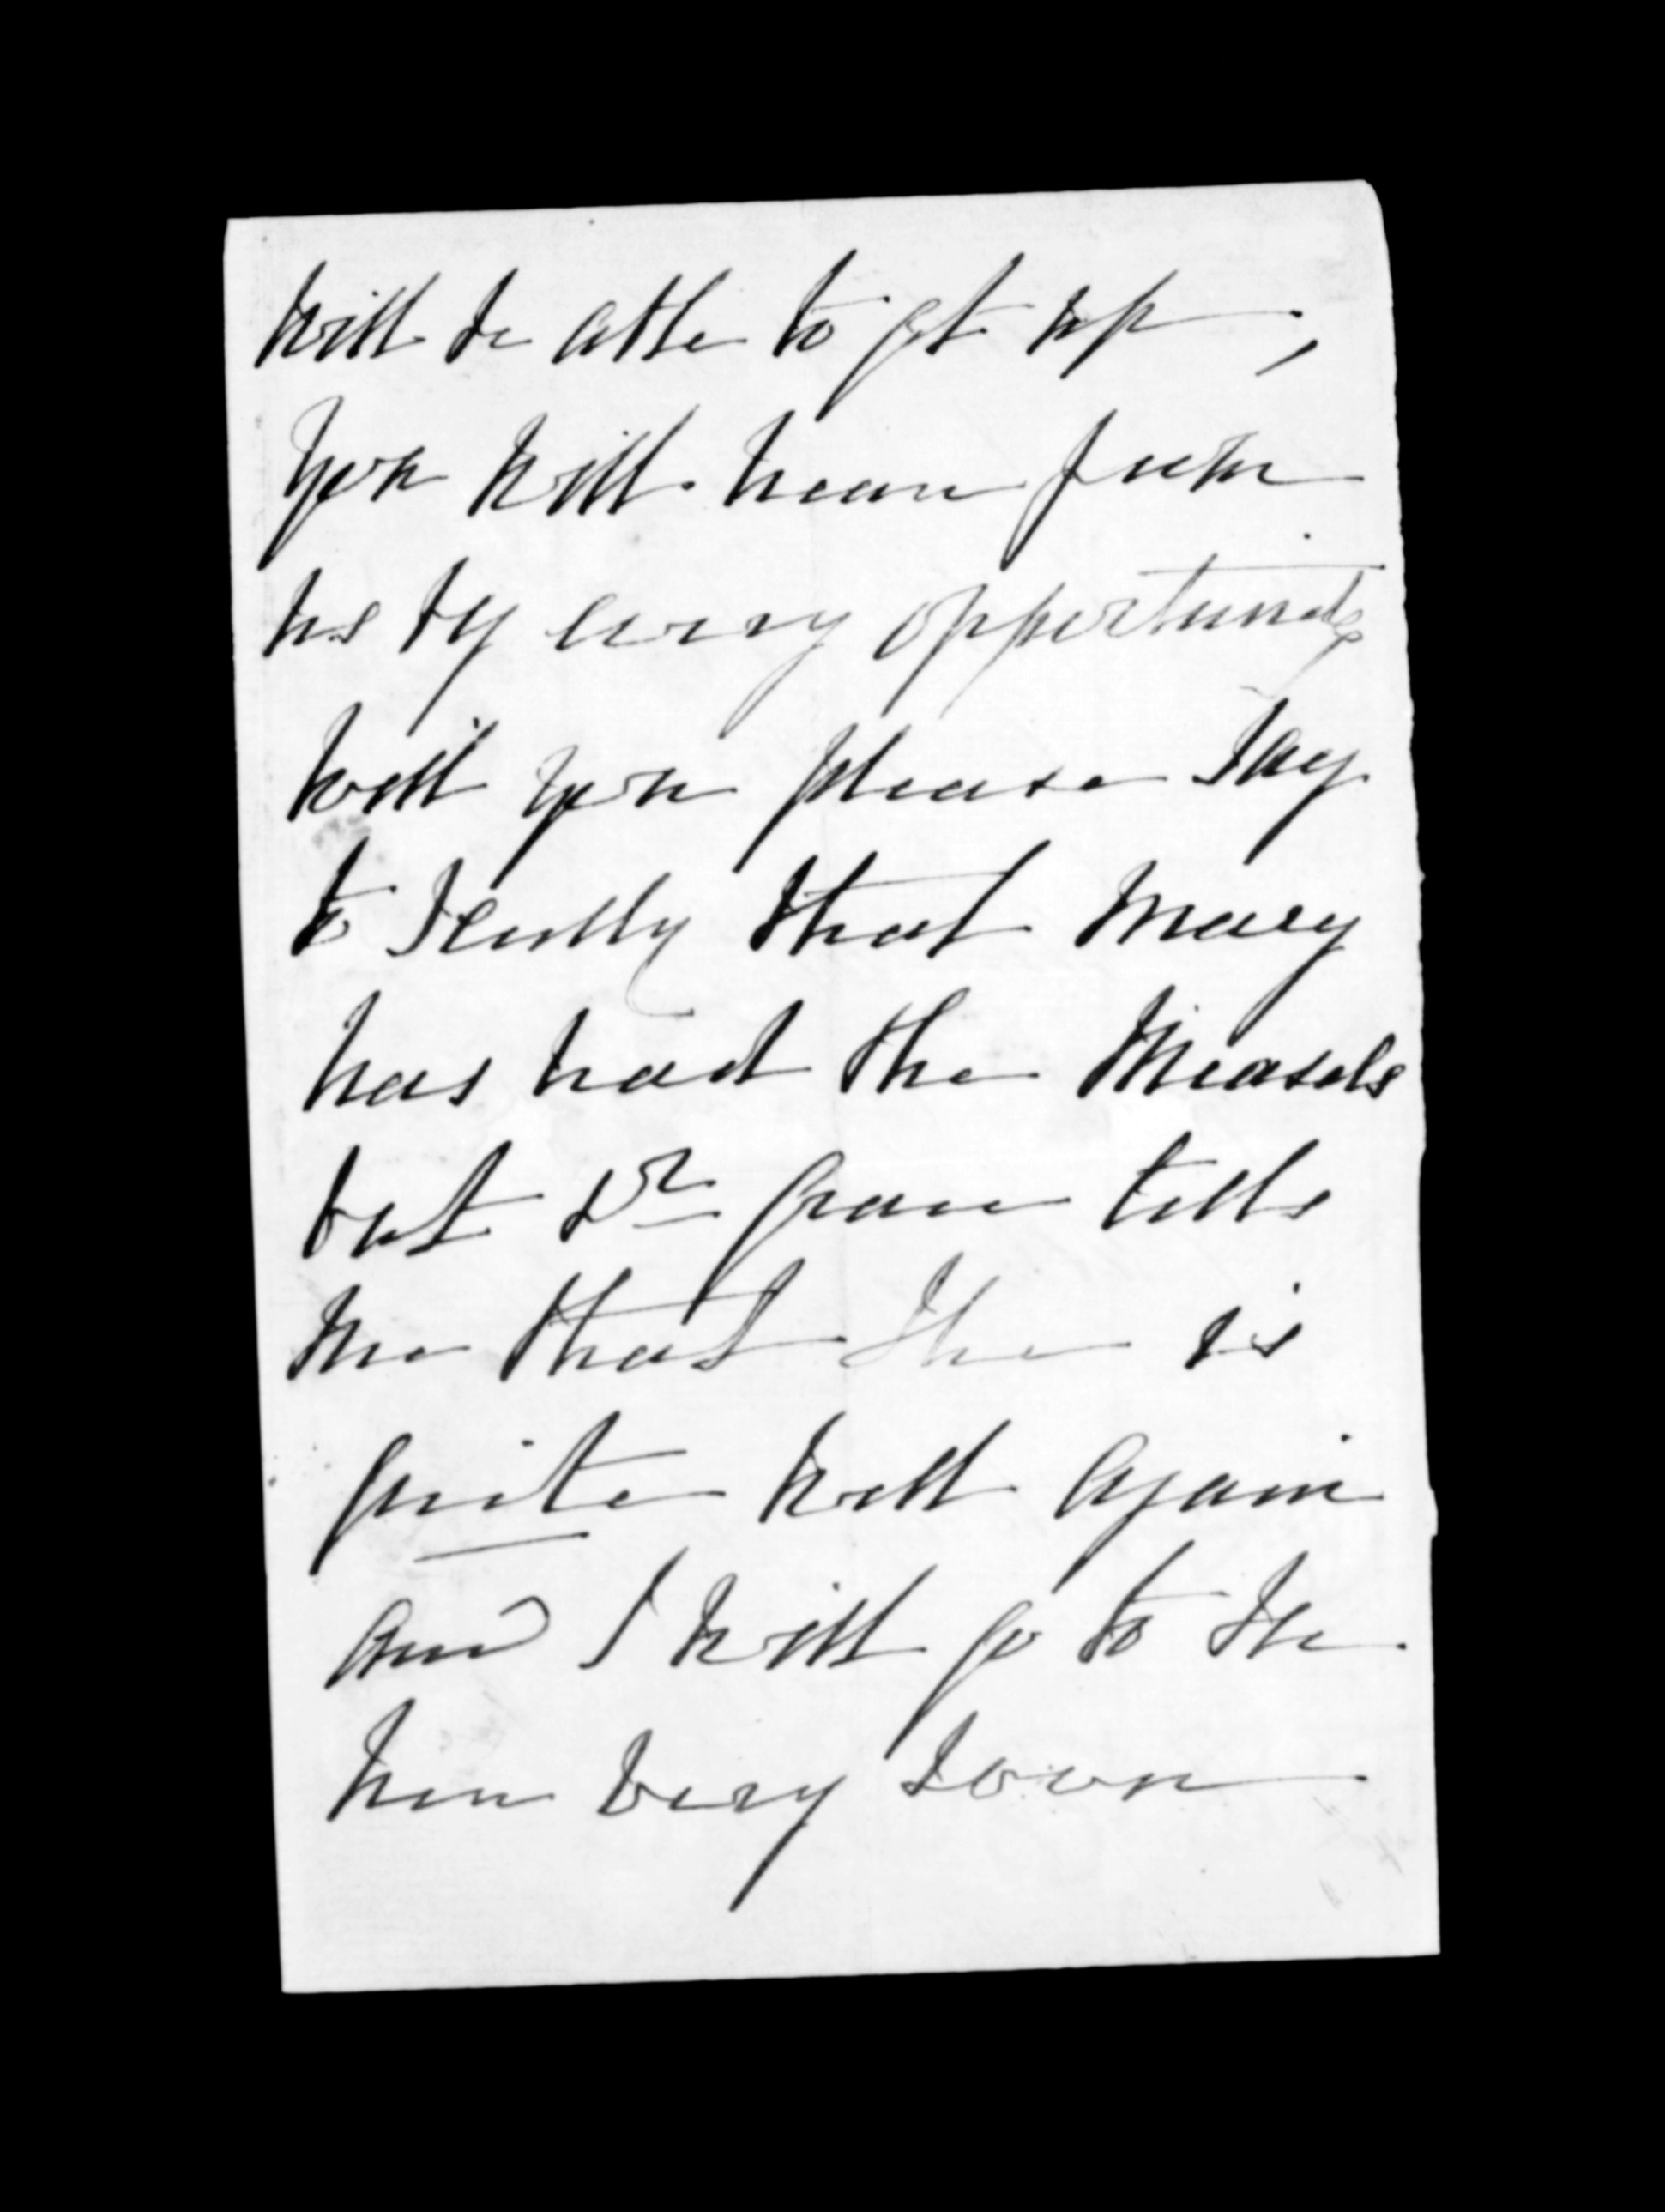 will be able to get up,
you will hear from
us by every opportunity
will you please say
to Scully that Mary
has had the Measels
but Dr Grace tells
me that she is
quite well again
and I will go to see
her very soon